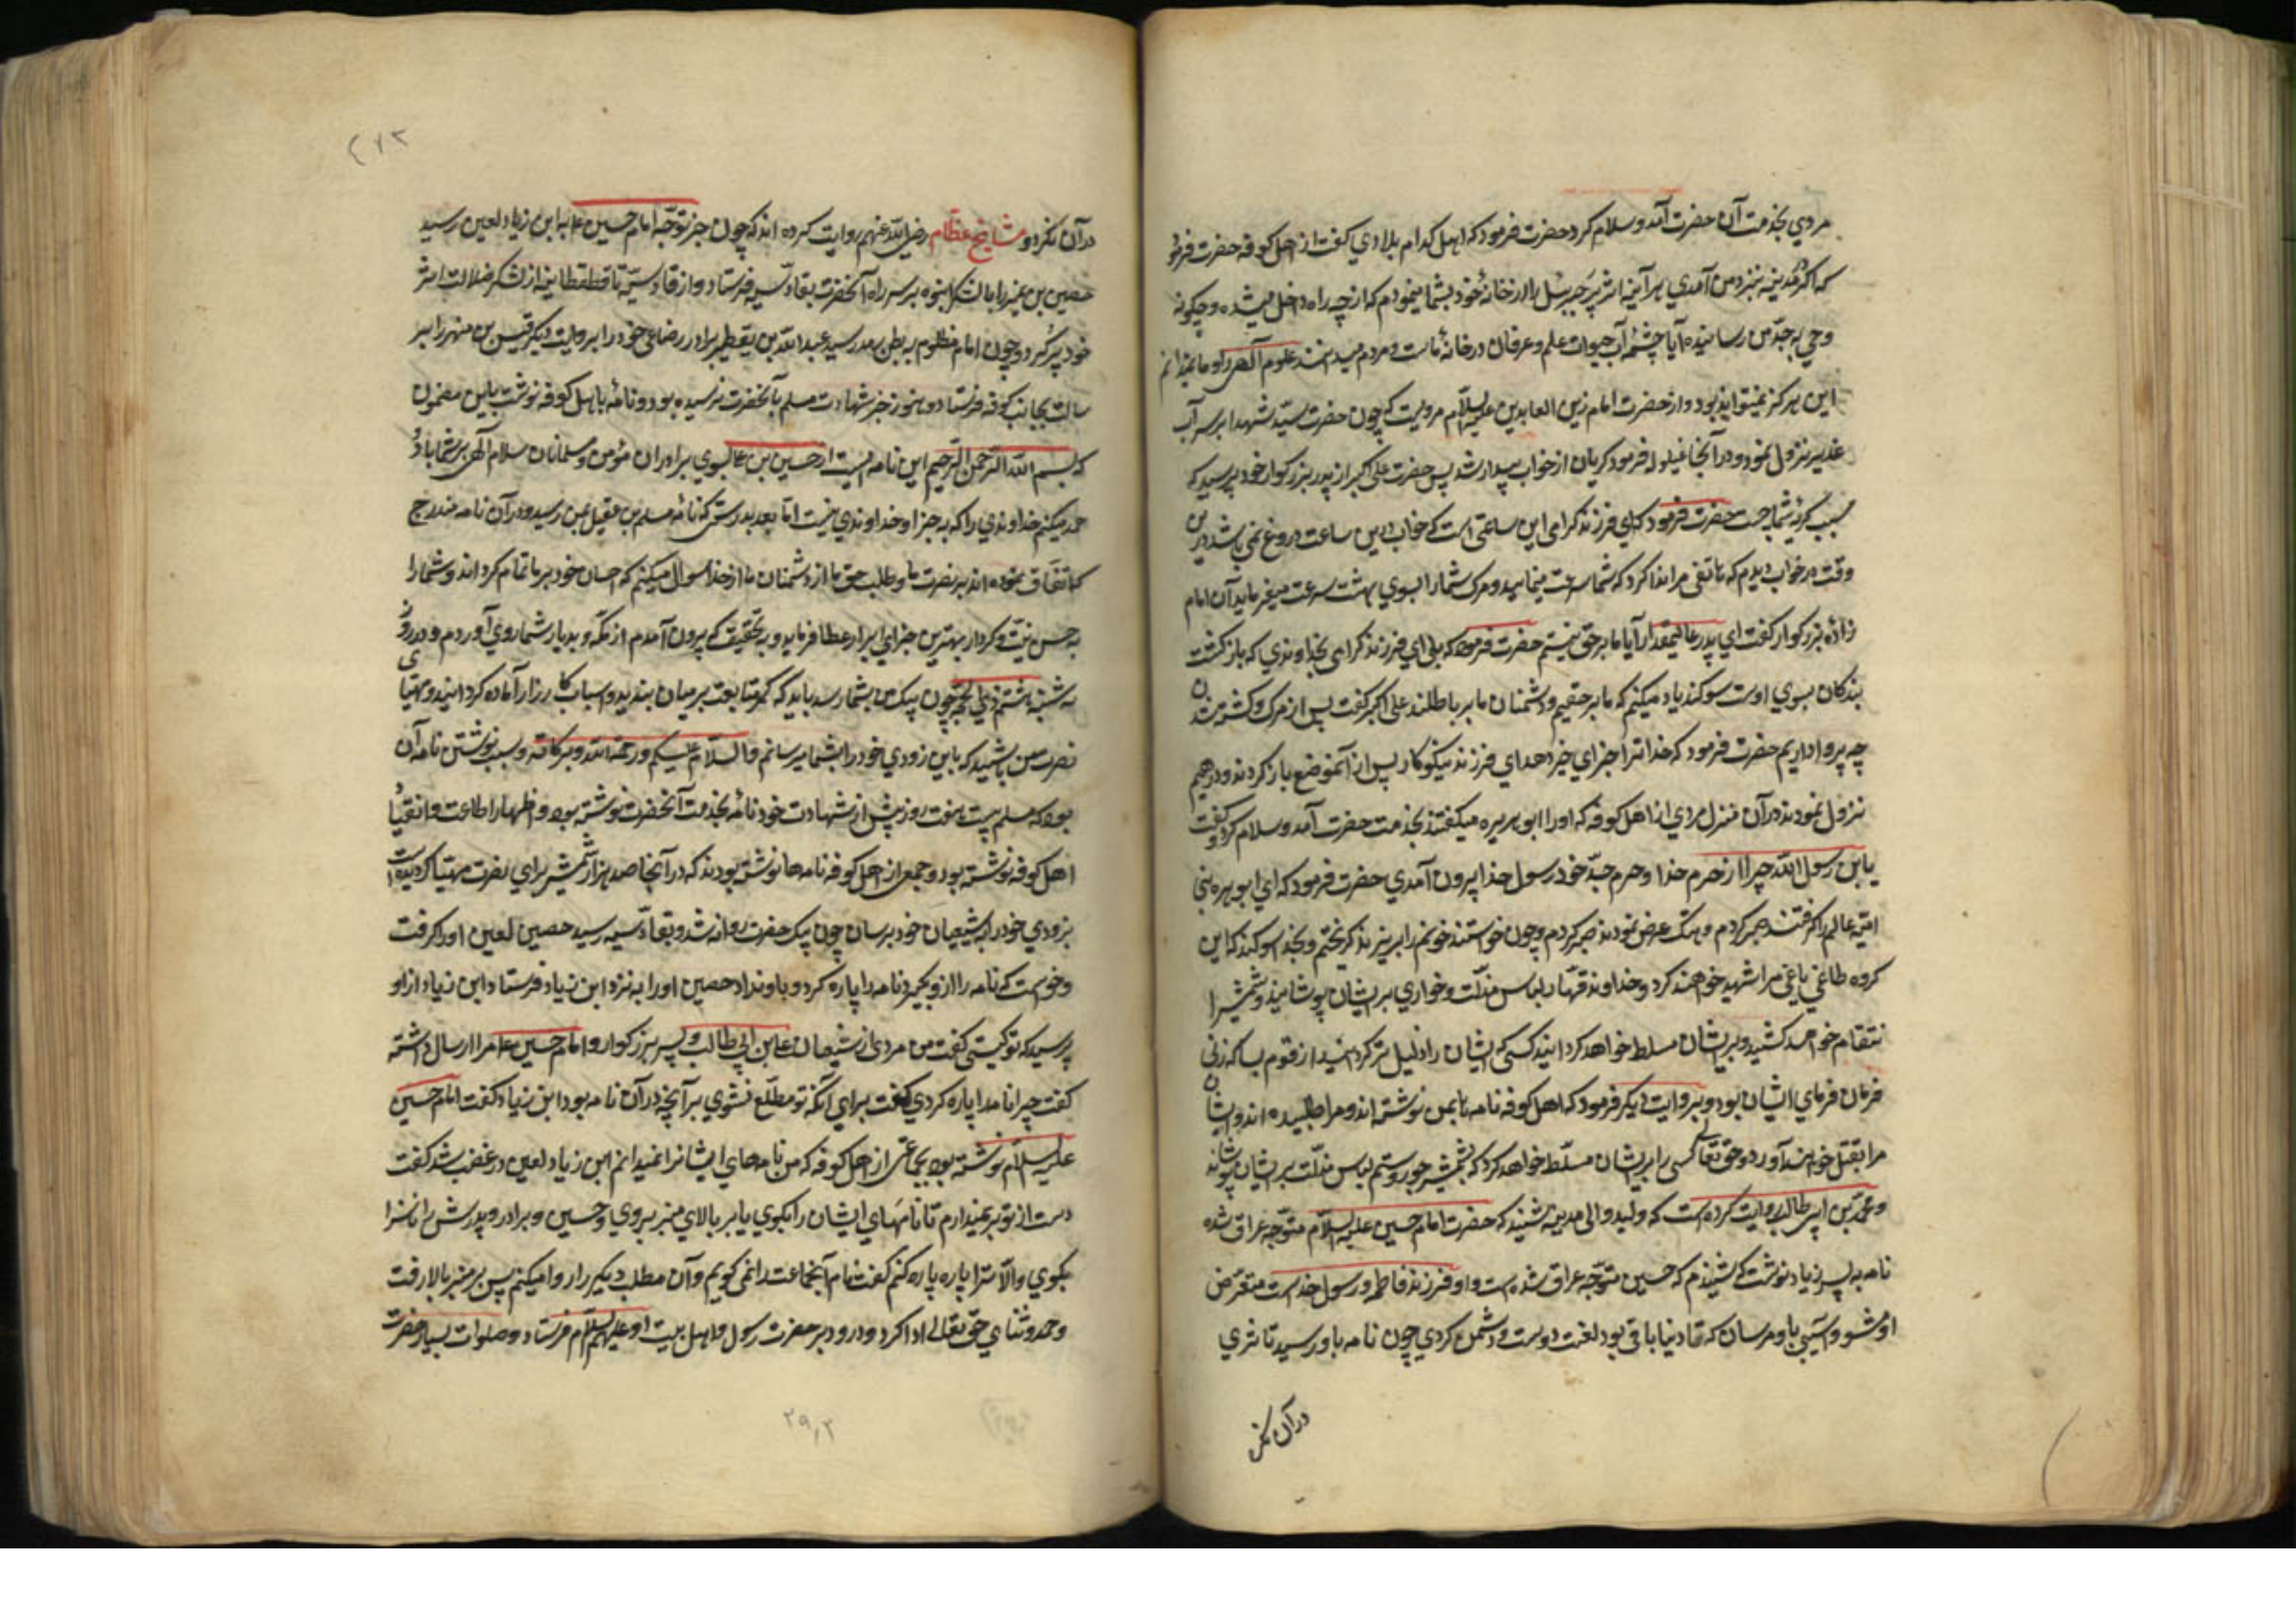 مردي بخدمت آن حضرت آمد و سلام کرد حضرت فرمود که اهل کدام بلادي گفت از اهل کوفه حضرت فرمود
که اگر در مدینه بنزد من آمدي هر آینه اثر پر جبرئیل را در خانهٔ خود بشما مینمودم که از چه راه داخل میشده و چگونه
وحي به جدّ من رسانیده آیا چشمهٔ آب حیوان علم و عرفان در خانهٔ ماست و مردم میدانند علوم الهی را و ما نمیدانیم
این هرگز نمیتواند بود و از حضرت امام زین العابدین علیه السلام مرویست که چون حضرت سیّد شهدا بر سر آب
غدیر نزول نمود و در آنجا قیلوله فرمود گریان از خواب بیدار شد پس حضرت علی اکبر از پدر بزرگوار خود پرسید که
سبب گریهٔ شما چیست حضرت فرمود که ای فرزند گرامی این ساعتی است که خواب در این ساعت دروغ نمی باشد در این
وقت در خواب دیدم که هاتفی مرا ندا کرد که شما سرعت مینمایید و مرگ شما را بسوي بهشت سرعت میفرماید آن امام
زادهٔ بزرگوار گفت اي پدر عالیمقدار آیا ما بر حق نیستیم حضرت فرمود که بلی اي فرزند گرامی بخداوندي که بازگشت
بندگان بسوي اوست سوگند یاد میکنم که ما بر حقیم و دشمنان ما بر باطلند علی اکبر گفت پس از مرگ و کشته شدن
چه پروا داریم حضرت فرمود که خدا ترا جزاي خیر دهد اي فرزند نیکوکار پس از آنموضع بار کردند و در رهیمه
نزول نمودند در آن منزل مردي از اهل کوفه که او را ابو هریره میگفتند بخدمت حضرت آمد و سلام کرد و گفت
یابن رسول الله چرا از حرم خدا و حرم جدّ خود رسول خدا بیرون آمدي حضرت فرمود که اي ابو هره بنی
امیّه مالم را گرفتند صبر کردم و هتک عرض نمودند صبر کردم و چون خواستند خونم را بریزند گریختم و بخدا سوگند که این
گروه طاغی یاغی مرا شهید خواهند کرد و خداوند قهّار لباس مذلّت و خواري بر ایشان پوشانید و شمشیر
انتقام خواهد کشید و بر ایشان مسلط خواهد کردانید کسی که ایشان را ذلیل تر گرداند از قوم سبا که زنی
فرمان فرماي ایشان بود و بروایت دیگر فرمود که اهل کوفه نامه ها بمن نوشته اند و مرا طلبیده اند و ایشان
مرا بقتل خواهند آورد و حق تعالی کسی را بر ایشان مسلّط خواهد کرد که بشمشیر جور و ستم لباس مذلّت بر ایشان پوشاند
و محمّد بن ابی طالب روایت کرده است که ولید والی مدینه شنید که حضرت امام حسین علیه السلام متوجّه عراق شده
نامه به پسر زیاد نوشت که شنیدم که حسین متوجّه عراق شده است و او فرزند فاطمه و رسول خداست متعرّض
او مشو و آسیبی باو مرسان که تا دنیا باقی بود لعنت دوست و دشمن کردي چون نامه باو رسید تاثیري
در آن نکر
۲۷۳
در آن نکرد و مشایخ عظام رضی الله عنهم روایت کرده اند که چون خبر توجّه امام حسین ع به ابن زیاد لعین رسید
حصین بن نمیر را با لشکر انبوه بر سر راه آنحضرت بقادسیه فرستاد و از قادسیّه تا قطقطانیه از لشکر ضلالت اثر
خود پر کرد و چون امام مظلوم به بطن رمه رسید عبد الله بن یقطر برادر رضاعی خود را بروایت دیگر قیس بن مسهر را بر
سالت بجانب کوفه فرستاد و هنوز خبر شهادت مسلم بآنحضرت نرسیده بود و نامهٔ باهل کوفه نوشت باین مضمون
که بسم الله الرّحمن الرّحیم این نامه ایست از حسین بن علی بسوي برادران مؤمن و مسلمانان سلام الهی بر شما باد
حمد میکنم خداوندي را که به جز او خداوندي نیست امّا بعد بدرستیکه نامهٔ مسلم بن عقیل بمن رسید و در آن نامه مندرج
که اتفاق نموده اند بر نصرت ما و طلب حق ما از دشمنان ما از خدا سوال میکنم که احسان خود بر ما تمام گرداند و شما را
به حسن نیّت و کردار بهترین جزاي ابرار عطا فرماید و به تحقیق که بیرون آمدم از مکّه و بدیار شما روي آوردم و در روز
سه شنبه هشتم ذي الحجّه چون پیک من بشما رسد باید که کمر متابعت بر میان بندید و اسباب کارزار آماده گردانید و مهیّاي
نصرت من باشید که باین زودي خود را بشما میرسانم والسلام علیکم ورحمة الله وبرکاته و سبب نوشتن نامه آن
بود که مسلم بیست هفت روز پیش از شهادت خود نامه بخدمت آنحضرت نوشته بود و اظهار اطاعت و انقیاد
اهل کوفه نوشته بود و جمعی از اهل کوفه نامه ها نوشته بودند که در آنجا صد هزار شمشیر براي نصرت مهیّا گردیده است
بزودي خود را به شیعیان خود برسان چون پیک حضرت روانه شد و بقادسیه رسید حصین لعین او را گرفت
و خواست که نامه را از و بگیرد نامه را پاره کرد و باو نداد حصین او را به نزد ابن زیاد فرستاد ابن زیاد از او
پرسید که تو کیستی گفت من مردی از شیعیان علی بن ابی طالب و پسر بزرگوار او امام حسین ع مرا ارسال داشته
گفت چرا نامه را پاره کردي گفت براي آنکه تو مطلّع نشوي بر آنچه در آن نامه بود ابن زیاد گفت امام حسین
علیه السلام نوشته بود بجماعتی از اهل کوفه که من نامهاي ایشانرا نمیدانم ابن زیاد لعین در غضب شد گفت
دست از تو بر نمیدارم تا نامهاي ایشان را بگوي یا بر بالاي منبر بروي و حسین و برادر و پدرش را ناسزا
بگوي و الّا ترا پاره پاره کنم گفت نام آنجماعت را نمی گویم و آن مطلب دیگر را روا میکنم پس بر منبر بالا رفت
و حمد و ثناي حق تعالی ادا کرد و درود بر حضرت رسول و اهل بیت او علیهم السلام فرستاد و صلوات بسیار حضرت
۲۹,۲